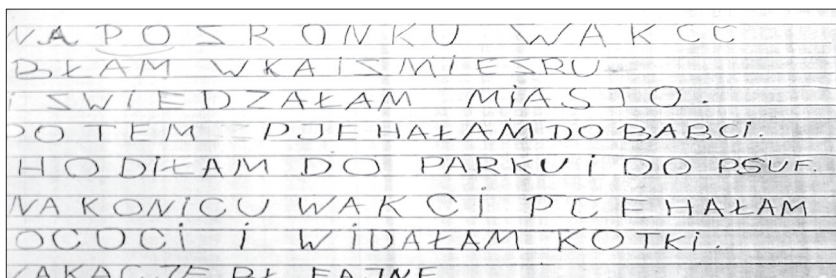 NA POSRONKU WAKCC
BŁAM WKAISMIESRU.
i SWIEDZAŁAM MiASTO.
POTEM PJEHAŁAM DO BABCi.
HODIŁAM DO PARKU i DO PSUF.
NA KONICU WAKCI PCEHAŁAM
OCOCI i WiDAŁAM KOTKi.
WAKACJE BŁ FAJNE